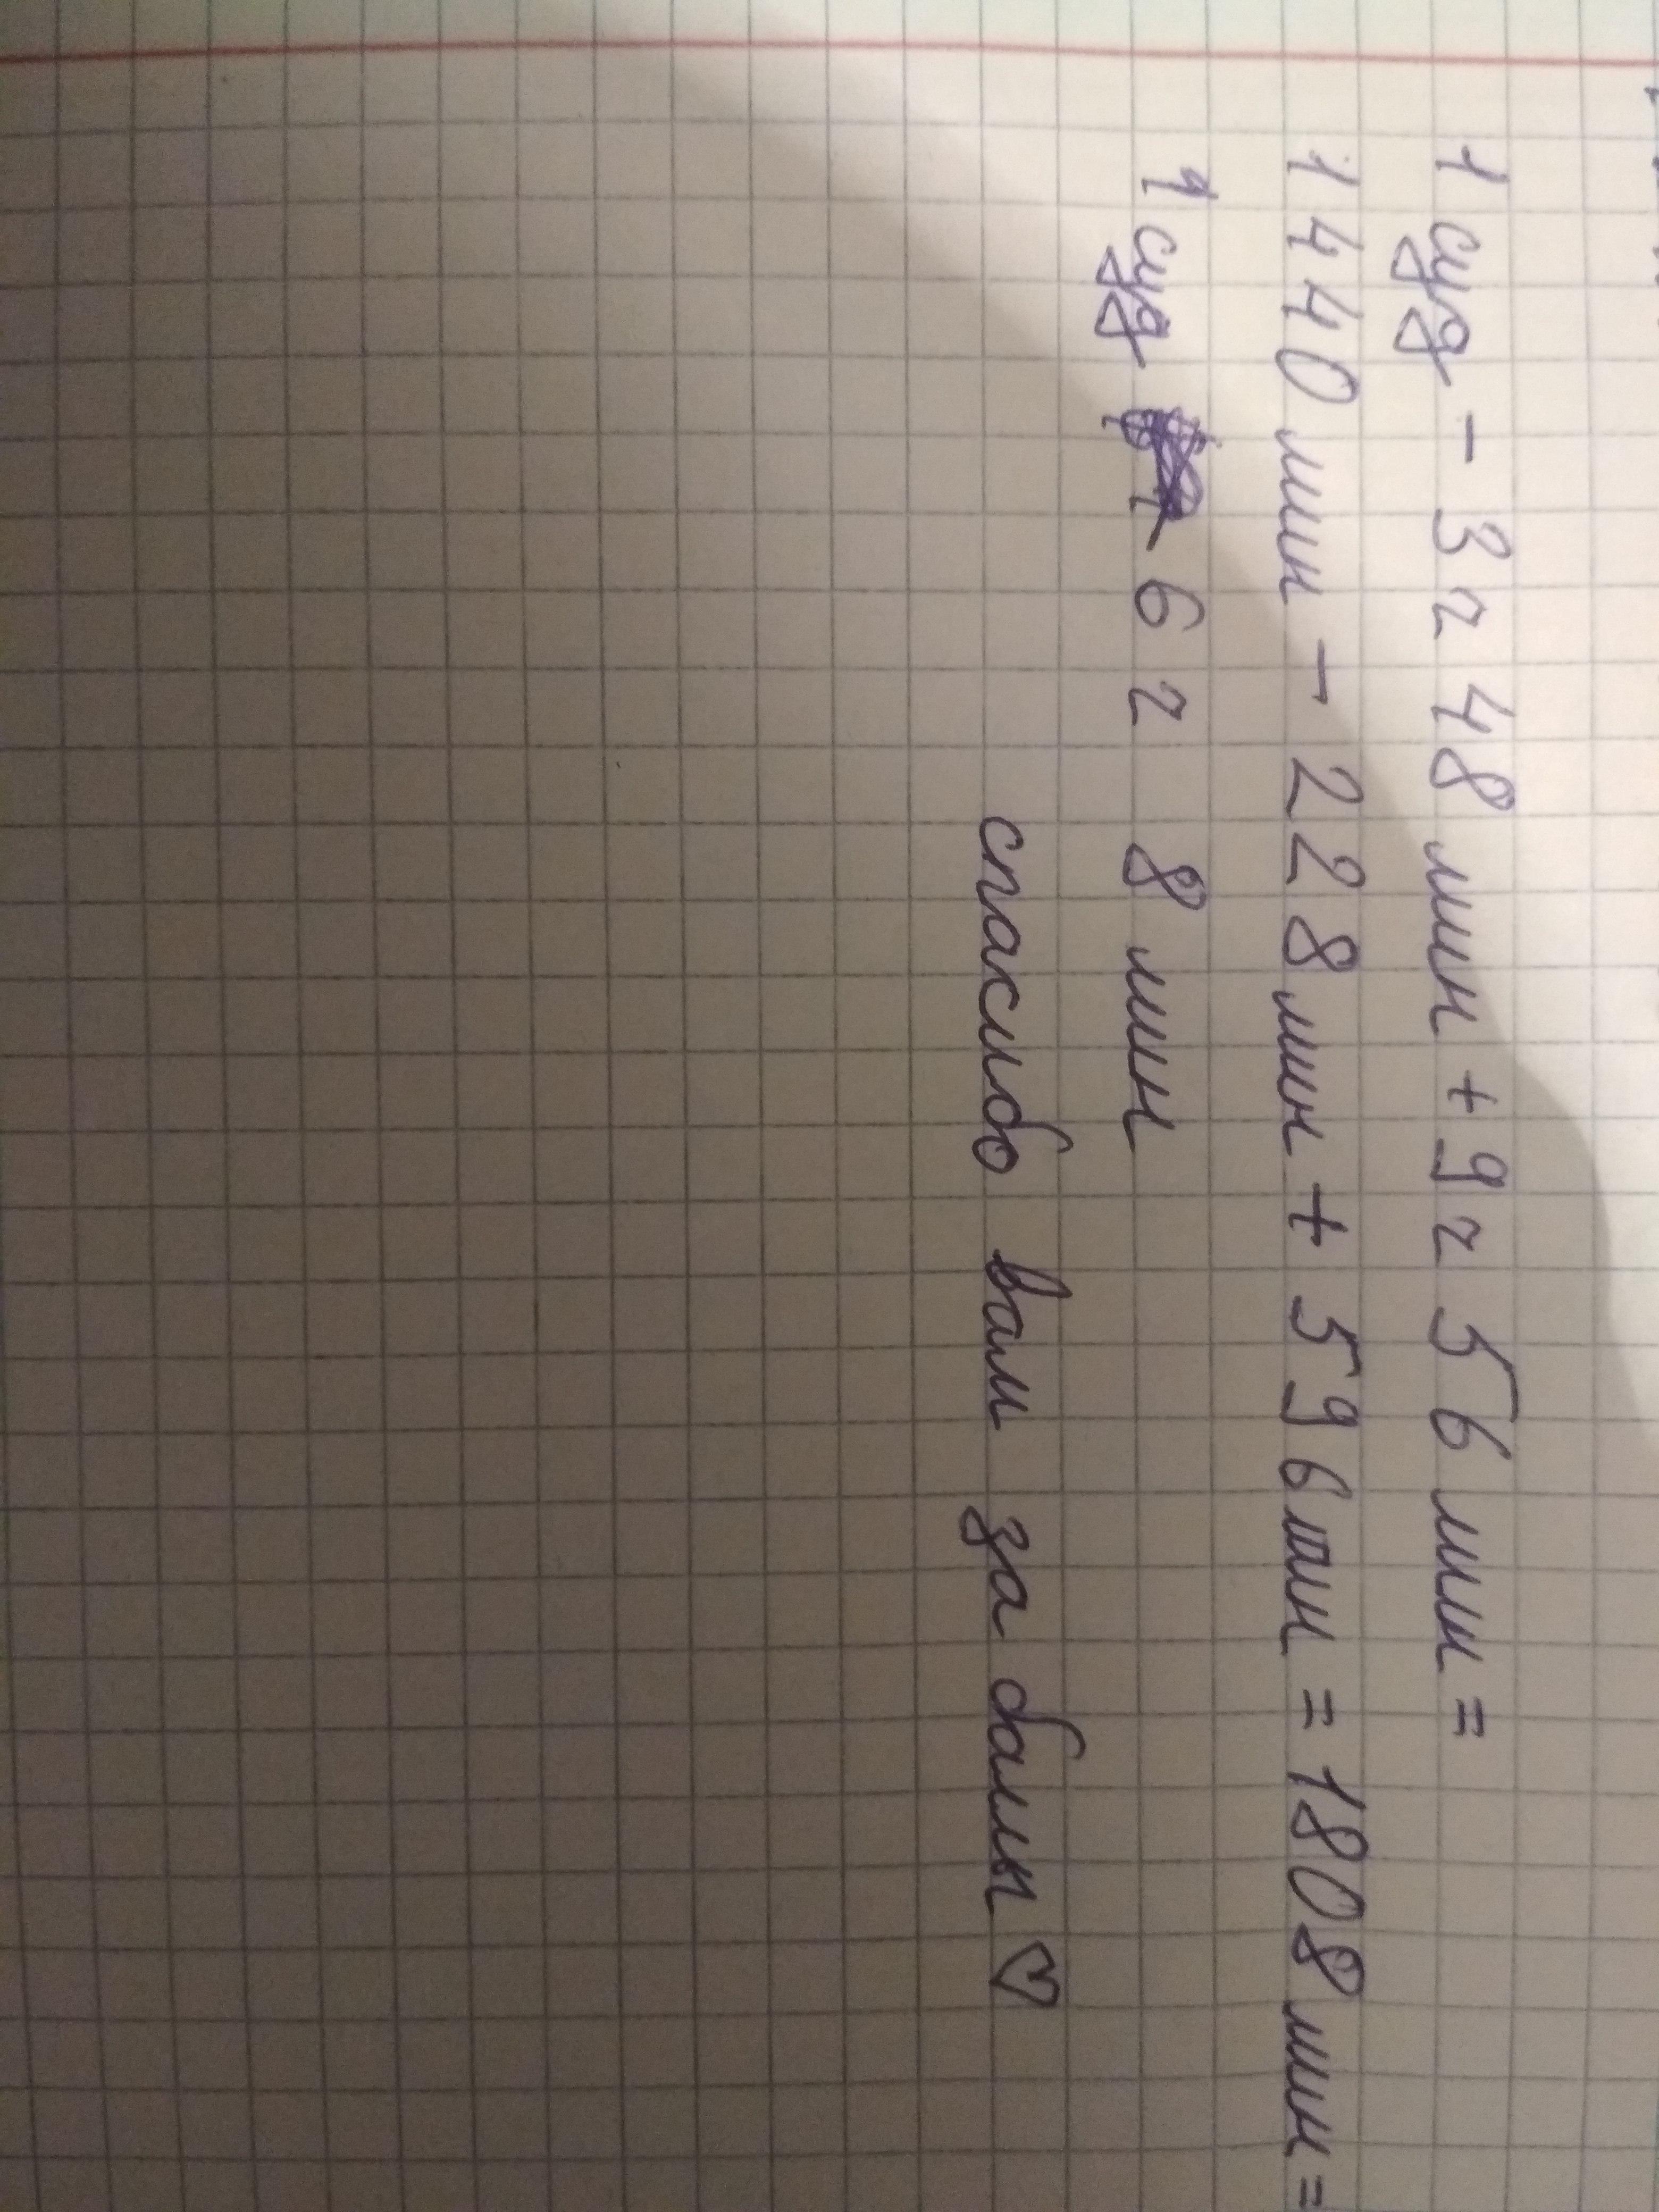 1 суд - 3 г 48 мин + 9 г 56 мин =
1440 мин - 228 мин + 596 мин = 1808 мин =
1 суд 6 г 8 мин
спасибо вам за балы ♡